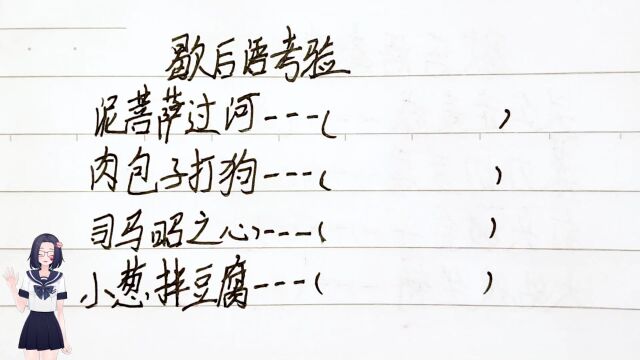 歇后语考验
泥菩萨过河---( )
肉包子打狗---( )
司马昭之心---( )
小葱拌豆腐---( )